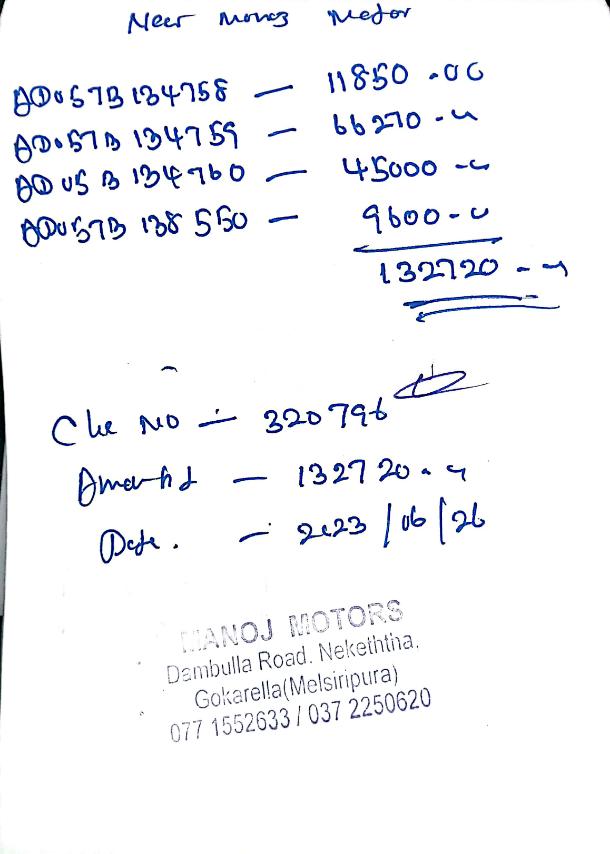 New Monoj Motor
AD057B134758 — 11850.00
AD057B 134759 — 66270.00
AD05 B 134760 — 45000.00
AD057B 138550 — 9600.00
132720.00
Che No — 320796
Amount — 132720.00
Date. — 2023/06/26
MANOJ MOTORS
Dambulla Road, Nekeththa,
Gokarella(Melsiripura)
077 1552633 / 037 2250620